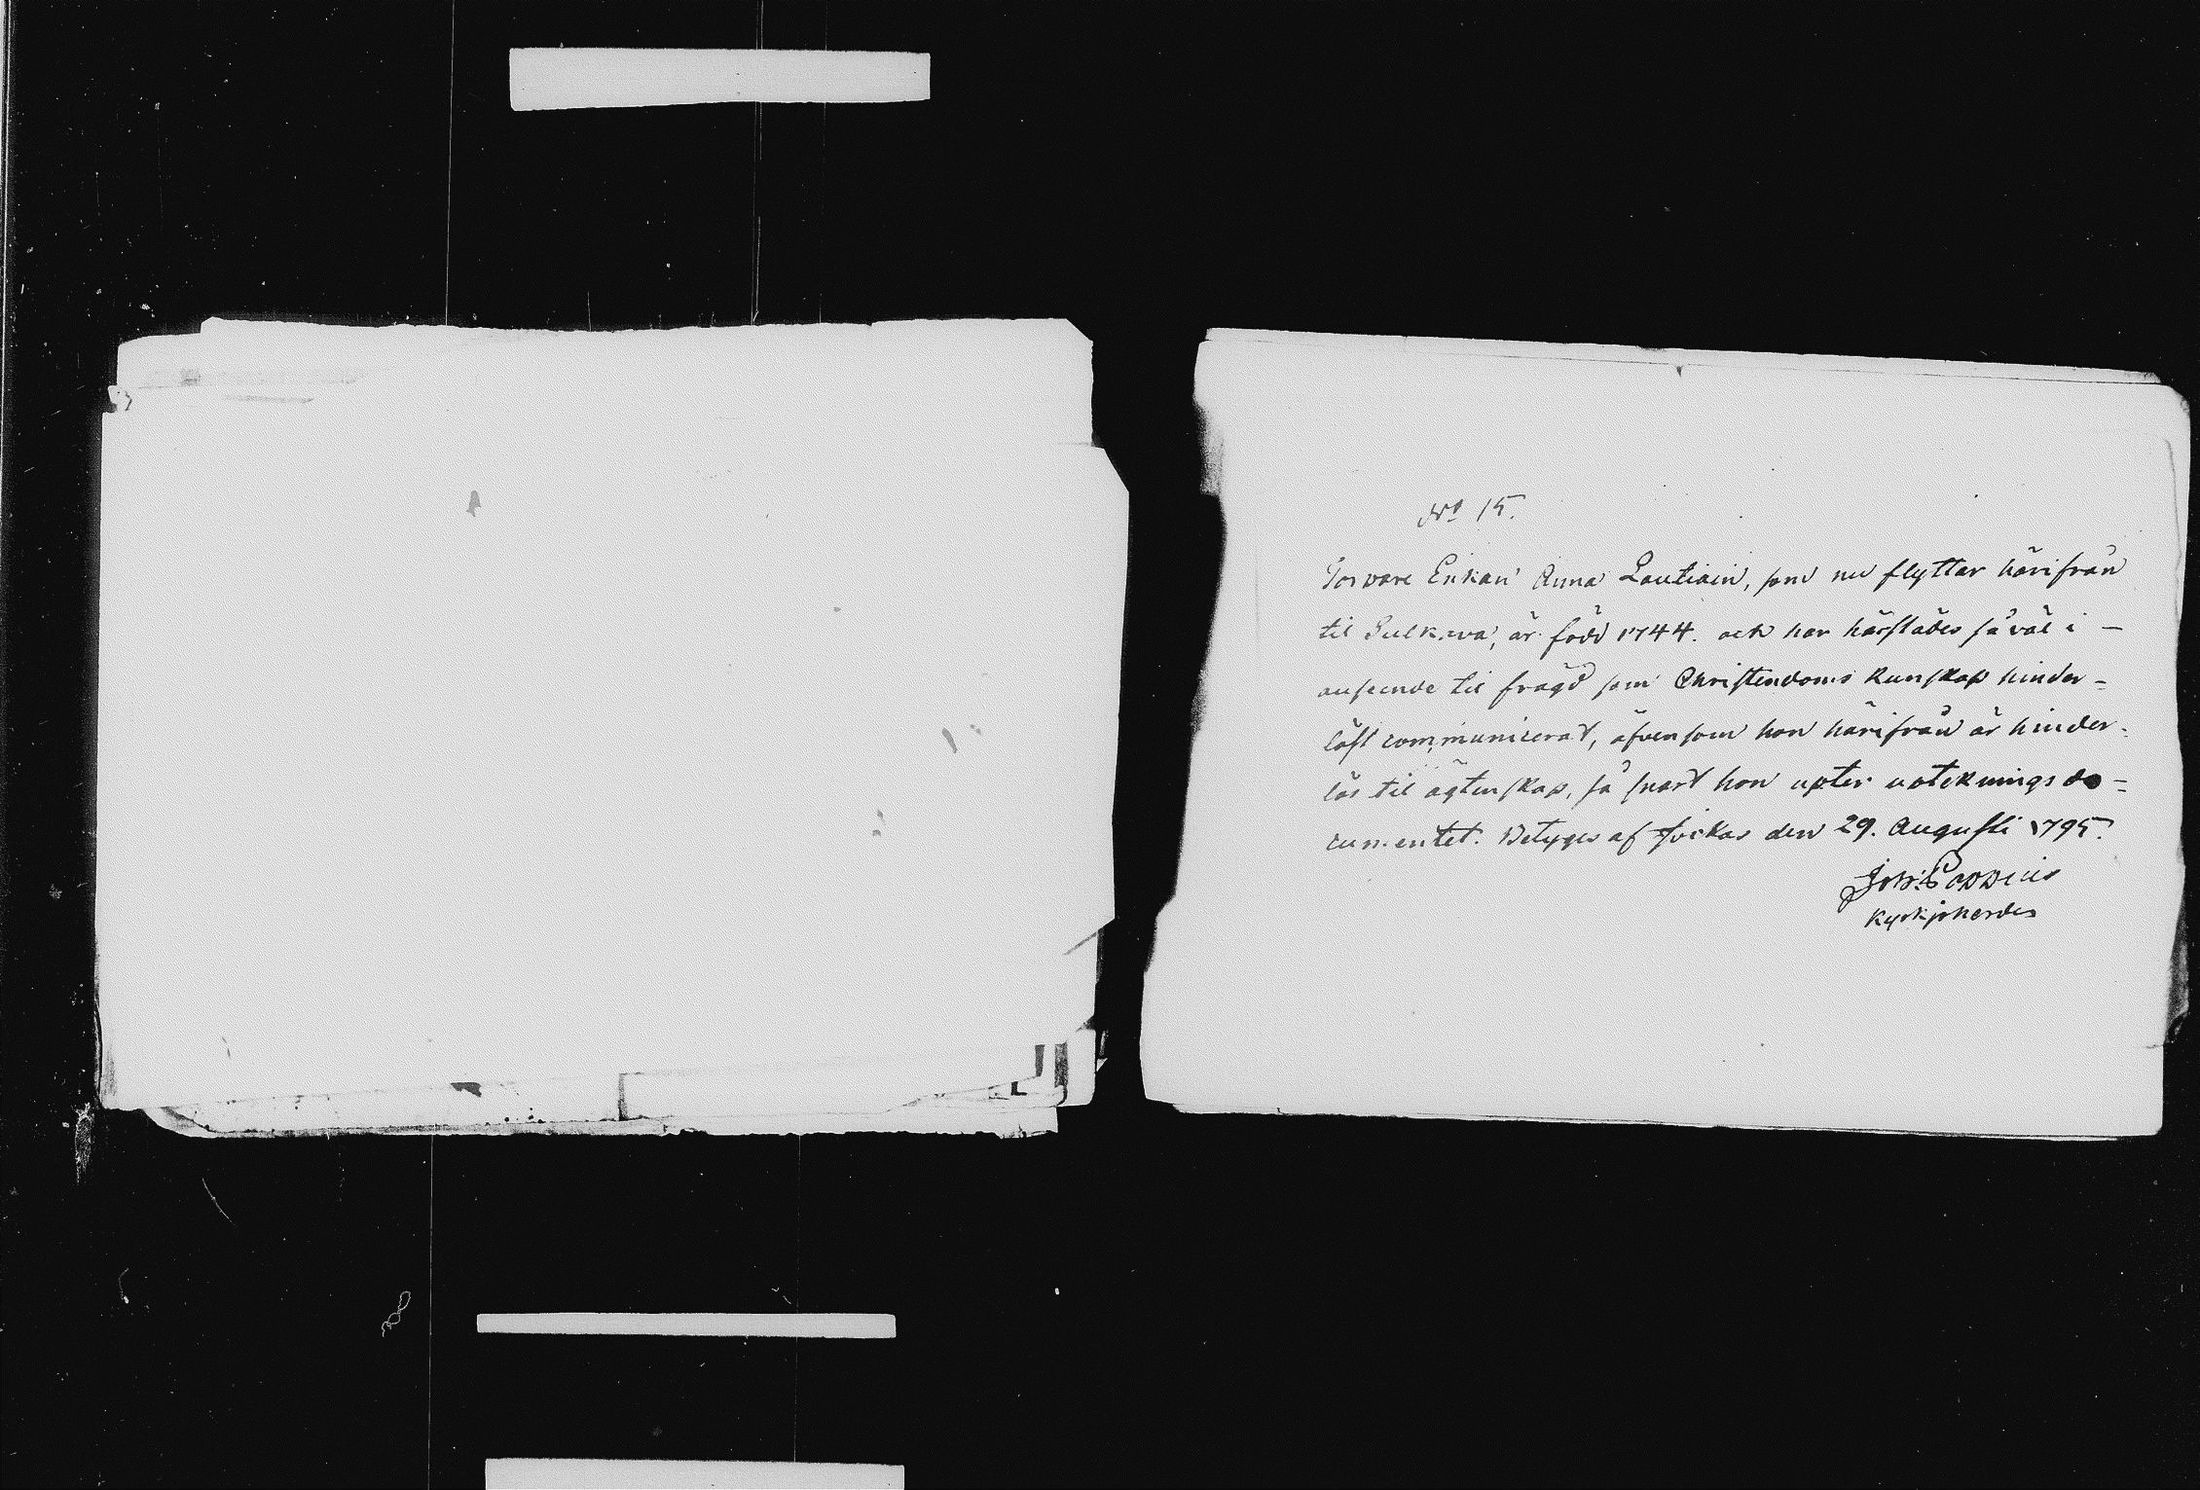 No 15.
Torpare Enkan Anna Lautiain, som nu flyttar härifrån
til Sulkava, är född 1744. och har härstädes så väl i —
anseende til frägd som Christendoms kunskap hinder=
löst communicerat, äfvensom hon härifrån är hinder=
lös til ägtenskap, så snart hon upter utekningsdo=
cumentet. Betyges af Jockas den 29. Augusti 1795.
Joh: Poppius
Kyrkjoherde